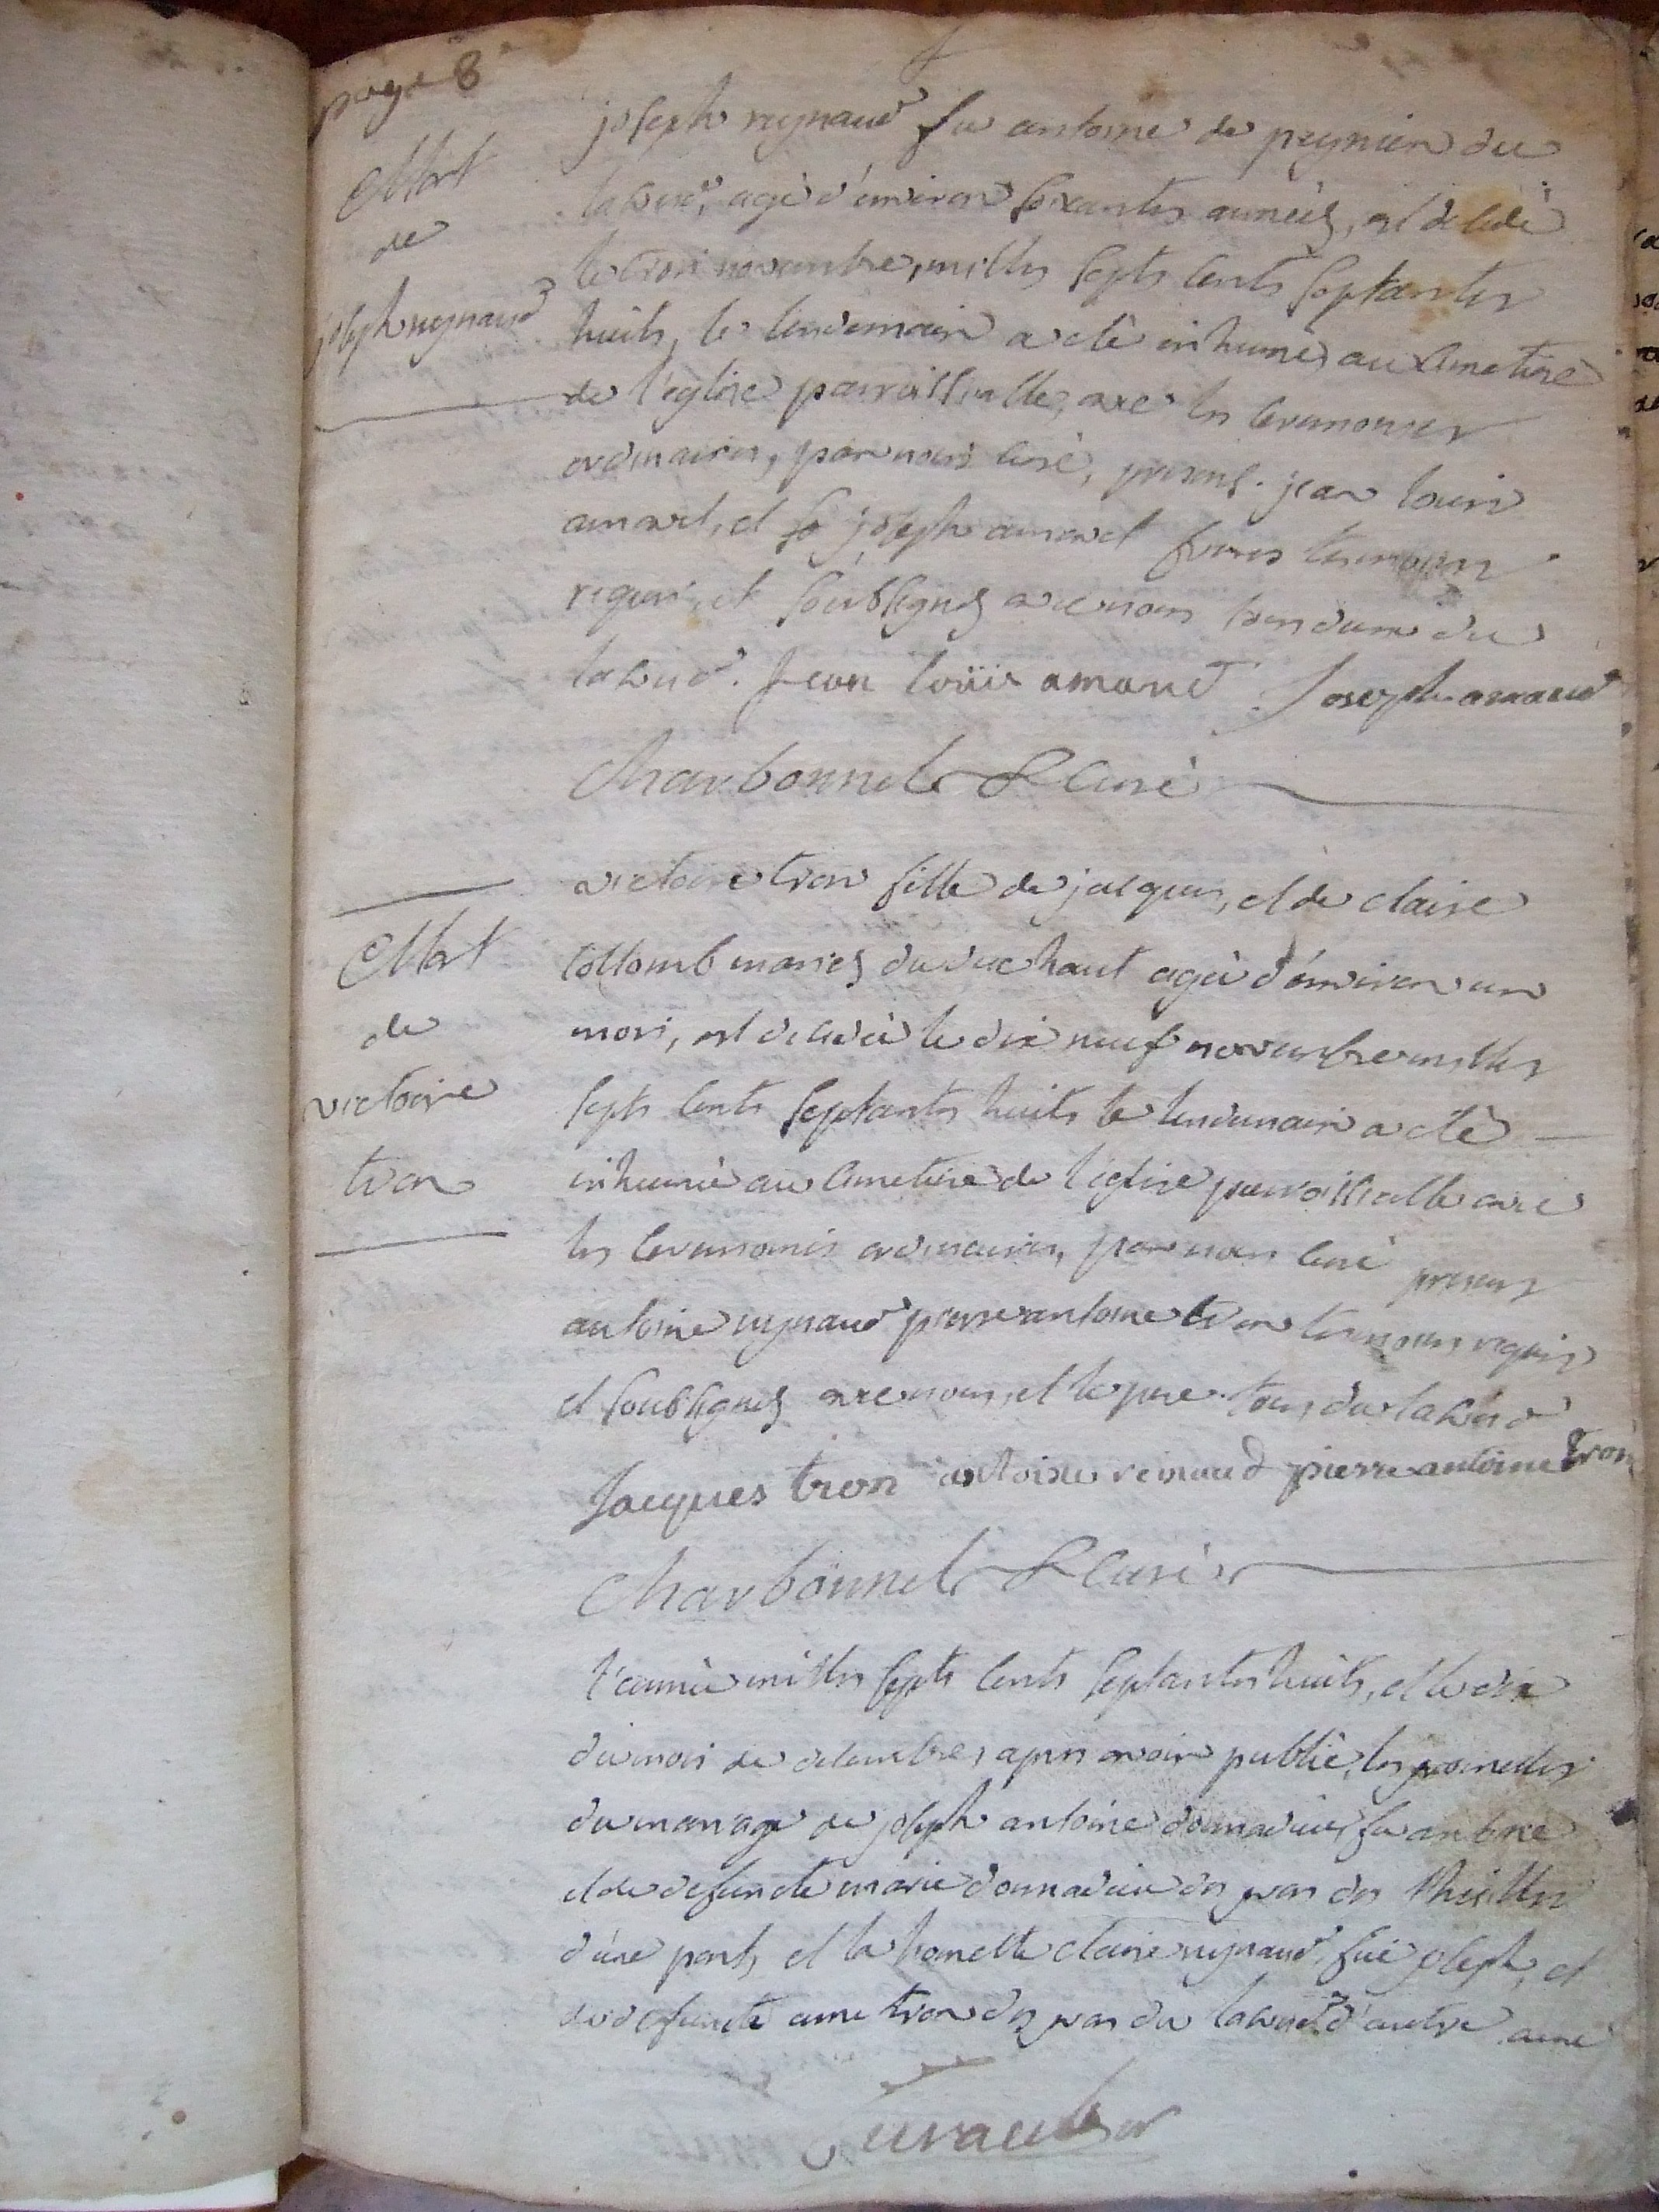 page 8
Mort
de
joseph reynaud
joseph reynaud fu antoine de peynier du
laverq, agé d'environ soixantes années, est decedé
le trois novembre, milles septs cents septantes
huits, le lendemain a etè inhumé au cimetiere
de l'eglise parroissialle, avec les ceremonies
ordinaires, par nous curé, presens jean louis
amaud, et joseph amaud freres temoins
requis, et soubsignés avec nous tous deux du
laverq. Jean louïs amaud Joseph amaud
Charbonnel Curè
Mort
de
victoire
tron
victoire tron fille de jacques, et de claire
collomb mariés du duc haut agée d'environ un
mois, est decedée le dix neuf novembre milles
septs cents septantes huits le lendemain a etè
inhumée au cimetiere de l'eglise parroissialle avec
les ceremonies ordinaires, par nous curé presens
antoine reynaud pierre antoine tron temoins requis
et soubsignés avec nous, et le pere tous du laverq
Jacques tron antoine reinaud pierre antoine tron
Charbonnel Curè
l'année milles septs cents septantes huits, et le dix
du mois de decembre, apres avoir publié les promesses
du mariage de joseph antoine donnadieu fu antoine
et de defuncte marie donnadieu des
d'une parts, et la honneste claire reynaud, fuë joseph, et
de defuncte anne tron du laverq d'autre